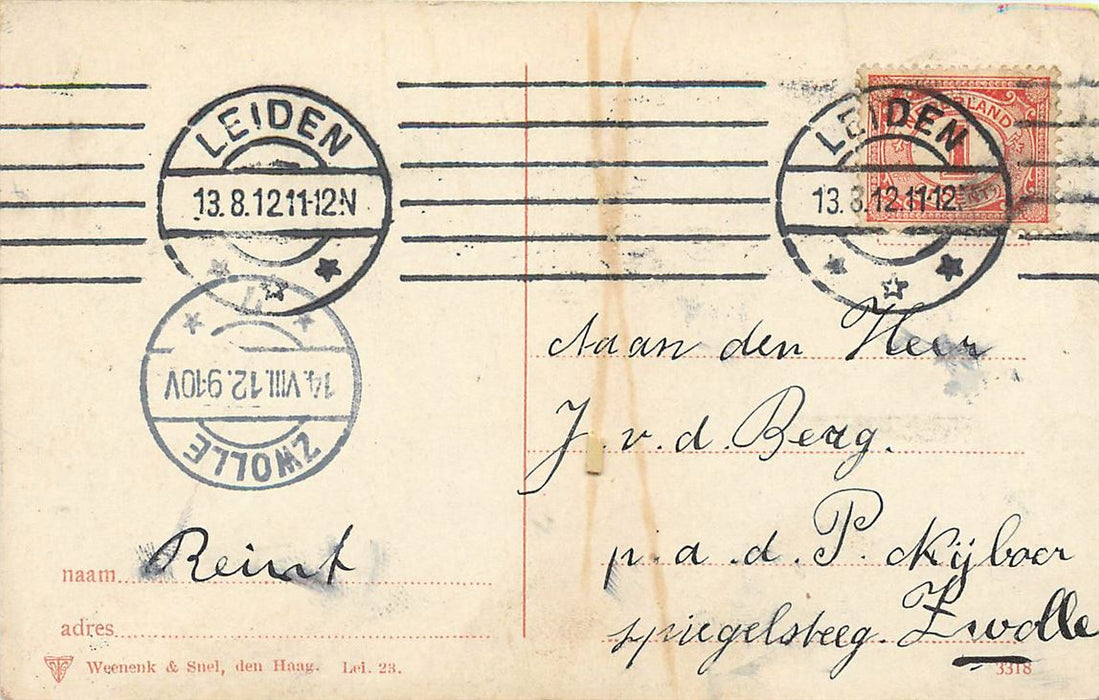 LEIDEN
13.8.12 11-12N
LEIDEN
13.8.12 11-12N
1
14.VIII.12.9-10V
ZWOLLE
Aan den Heer
J. v. d. Berg.
p. a. d. P. Nijboer
spiegelsteeg. Zwolle
naam Reint
adres
Weenenk & Snel, den Haag. Lei. 23.
3318